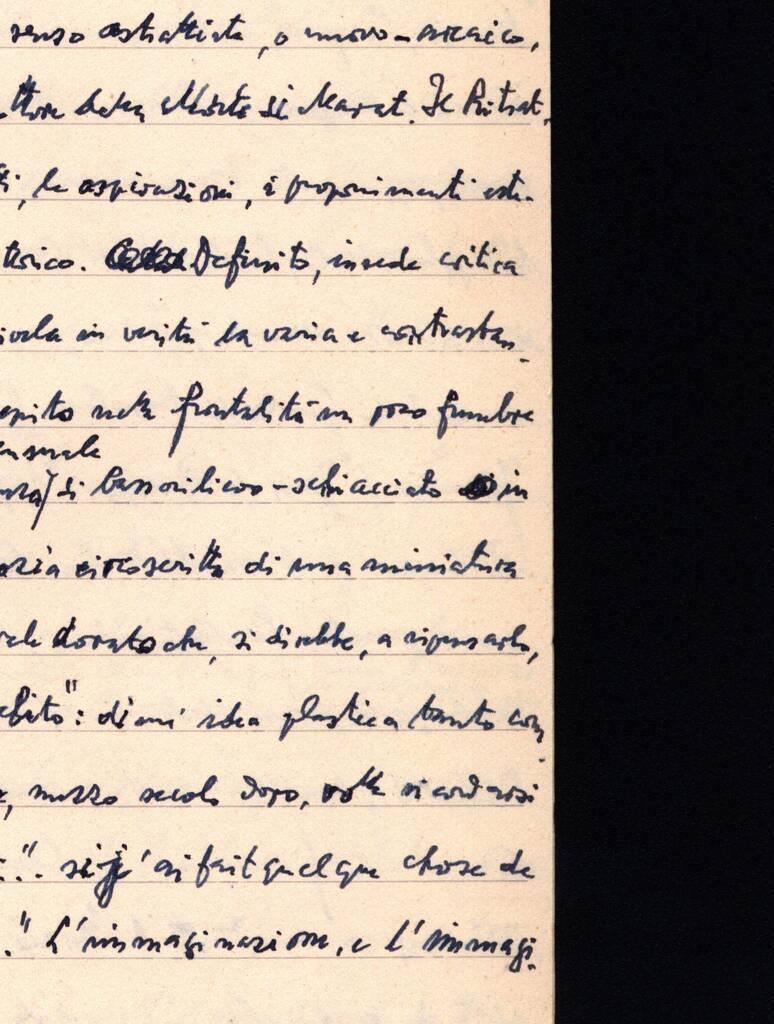 senso astrattista, o nuovo-arcaico,
ttore della Morte di Marat. Il Ritrat-
ti, le aspirazioni, i proponimenti este-
torico. Definito, in sede critica
ivela in verità la varia e contrastan-
epito nella frontalità un poco funebre
ensuale
di bassorilievo-schiacciato in
azia circoscritta di una miniatura
vale dorato che, si direbbe, a ripensarlo,
ebito": di cui idea plastica tanto com-
e, mezzo secolo dopo, volle ricordarsi
:". si j'ai fait quelque chose de
." L'immaginazione, e l'immagi-